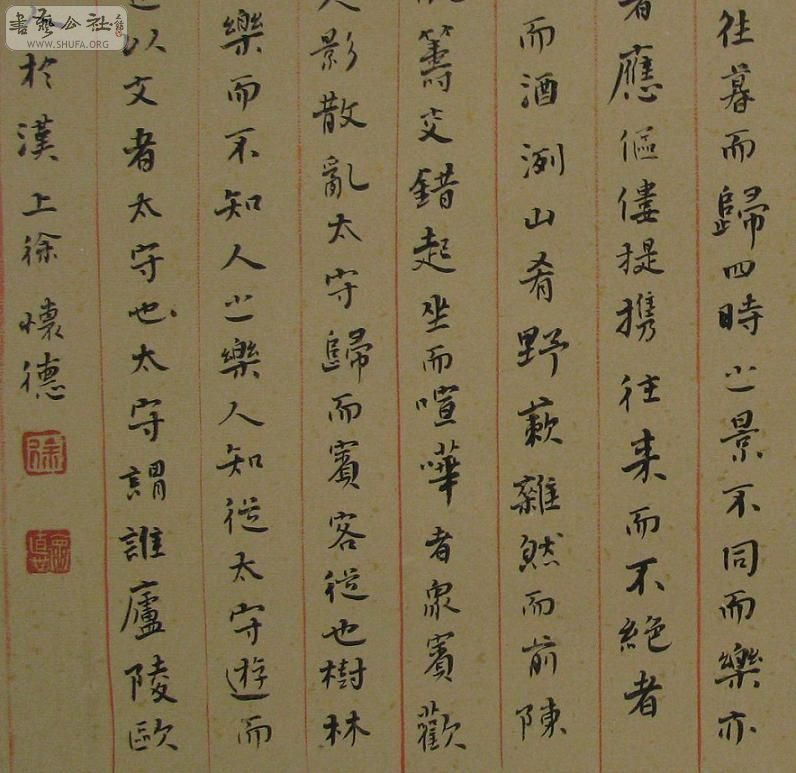 往暮而歸四時之景不同而樂亦
者應傴僂提携往来而不絶者
而酒洌山肴野蔌雜然而前陳
籌交錯起坐而喧嘩者衆賓歡
人影散亂太守歸而賓客從也樹林
樂而不知人之樂人知從太守遊而
以文者太守也太守謂誰廬陵歐
於漢上徐懷德
徐
書藝公社
WWW.SHUFA.ORG